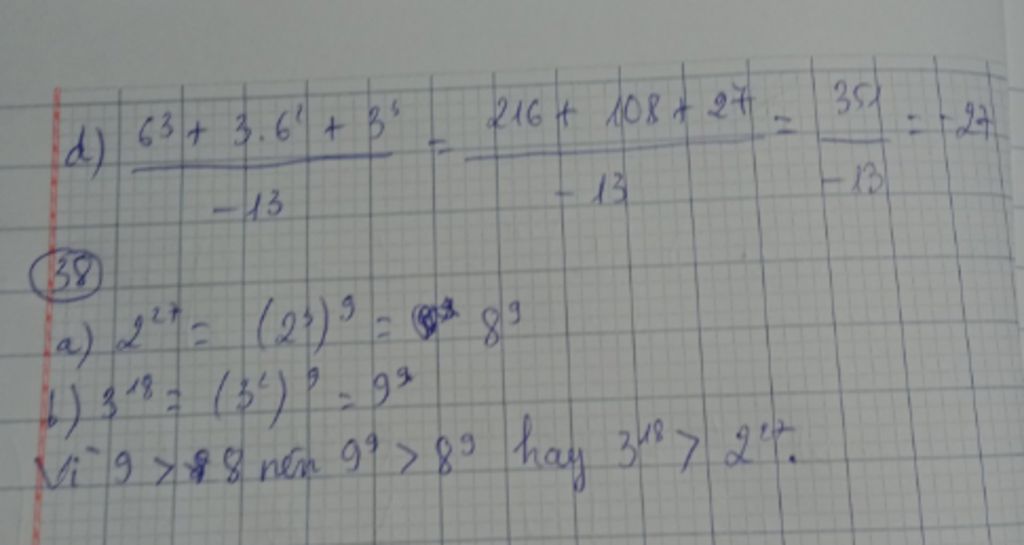 d) (6³ + 3.6² + 3³)/(-13) = (216 + 108 + 27)/(-13) = 351/(-13) = -27
38
a) 2²⁷ = (2³)⁹ = 8⁹
b) 3¹⁸ = (3²)⁹ = 9⁹
Vì 9 > 8 nên 9⁹ > 8⁹ hay 3¹⁸ > 2²⁷.